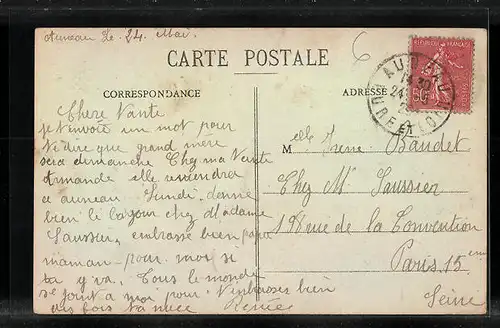 Auneau le 24 Mai
CARTE POSTALE
CORRESPONDANCE
ADRESSE
Chere Tante
je t'envoie un mot pour
te dire que grand mère
sera dimanche Chez ma Tante
Armande elle reviendra
a auneau Lundi. donne
bien le bonjour chez Madame
Saussier, embrasse bien papa
maman pour moi si
tu y va. Tous le monde
se joint a moi pour t'embrasser bien
des fois ta niece Renée
Melle Irene Baudet
Chez Mr Saussier
198 rue de la Convention
Paris 15eme
Seine
AUNEAU
14 30
24
EURE ET LOIR
REPUBLIQUE FRANÇAISE
50c